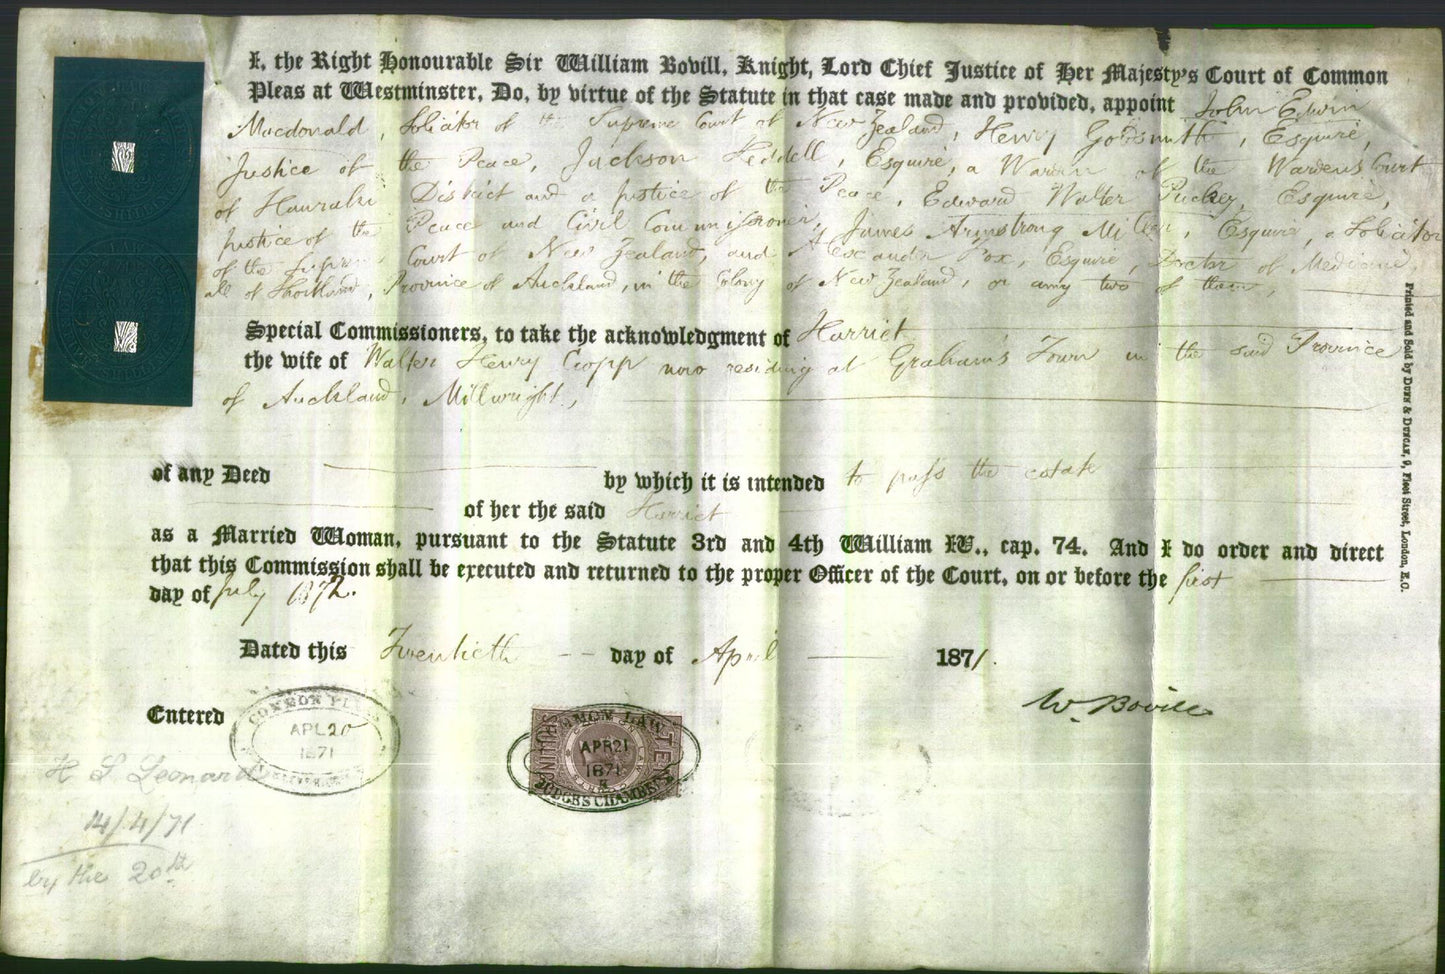 I, the Right Honourable Sir William Bovill, Knight, Lord Chief Justice of Her Majesty's Court of Common
Pleas at Westminster, Do, by virtue of the Statute in that case made and provided, appoint John Edwin
Macdonald, Solicitor of the Supreme Court of New Zealand, Henry Goldsmith, Esquire,
Justice of the Peace, Jackson Keddell, Esquire, a Warden of the Wardens Court
of Hauraki District and a Justice of the Peace, Edward Walter Puckey, Esquire,
Justice of the Peace and Civil Commissioner, James Armstrong Miller, Esquire, a Solicitor
of the Supreme Court of New Zealand, and Alexander Fox, Esquire, Doctor of Medicine,
all of Shortland, Province of Auckland, in the Colony of New Zealand, or any two of them,
Special Commissioners, to take the acknowledgment of Harriet
the wife of Walter Henry Cropp now residing at Graham's Town in the said Province
of Auckland, Millwright,
of any Deed by which it is intended to pass the estate
of her the said Harriet
as a Married Woman, pursuant to the Statute 3rd and 4th William IV., cap. 74. And I do order and direct
that this Commission shall be executed and returned to the proper Officer of the Court, on or before the first
day of July 1872.
Dated this Twentieth day of April 1871.
W. Bovill
Entered
COMMON PLEAS
APL 20
1871
COMMON LAW
TEN SHILLINGS
APR 21
1871
JUDGES CHAMBERS
H S Leonard
14/4/71
by the 20th
Printed and Sold by DUNN & DUNCAN, 9, Fleet Street, London, E.C.